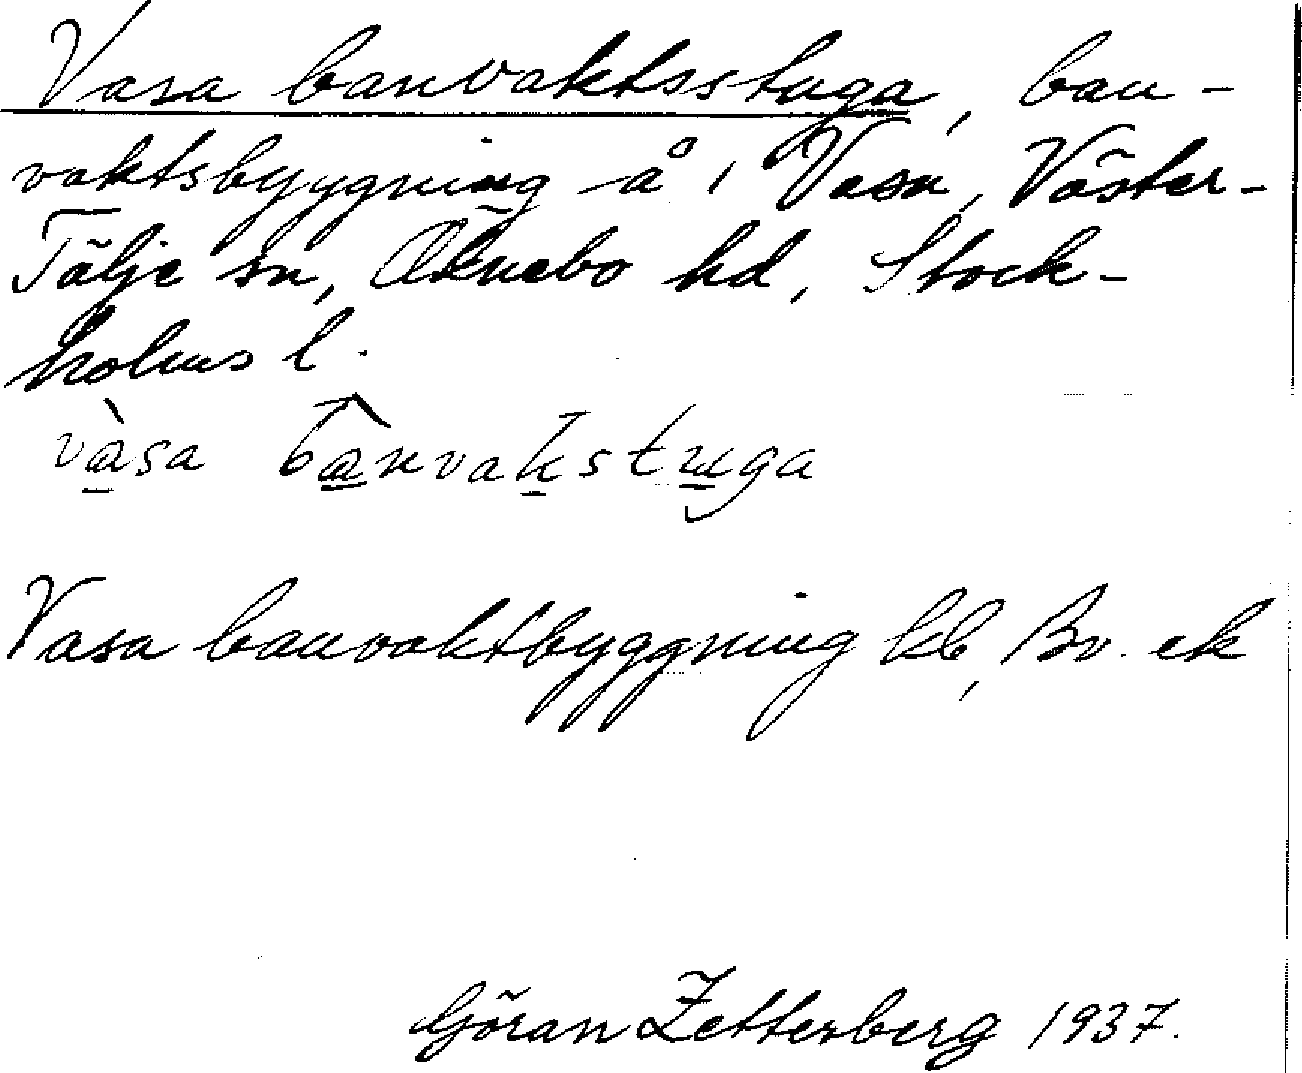 Vasa banvaktsstuga, ban-
vaktsbyggning å 1 Vasa, Väster-
Tälje sn, Öknebo hd, Stock-
holms l.
vàsa bânvakstuga
Vasa banvaktbyggning kb, Bv. ek
Göran Zetterberg 1937.